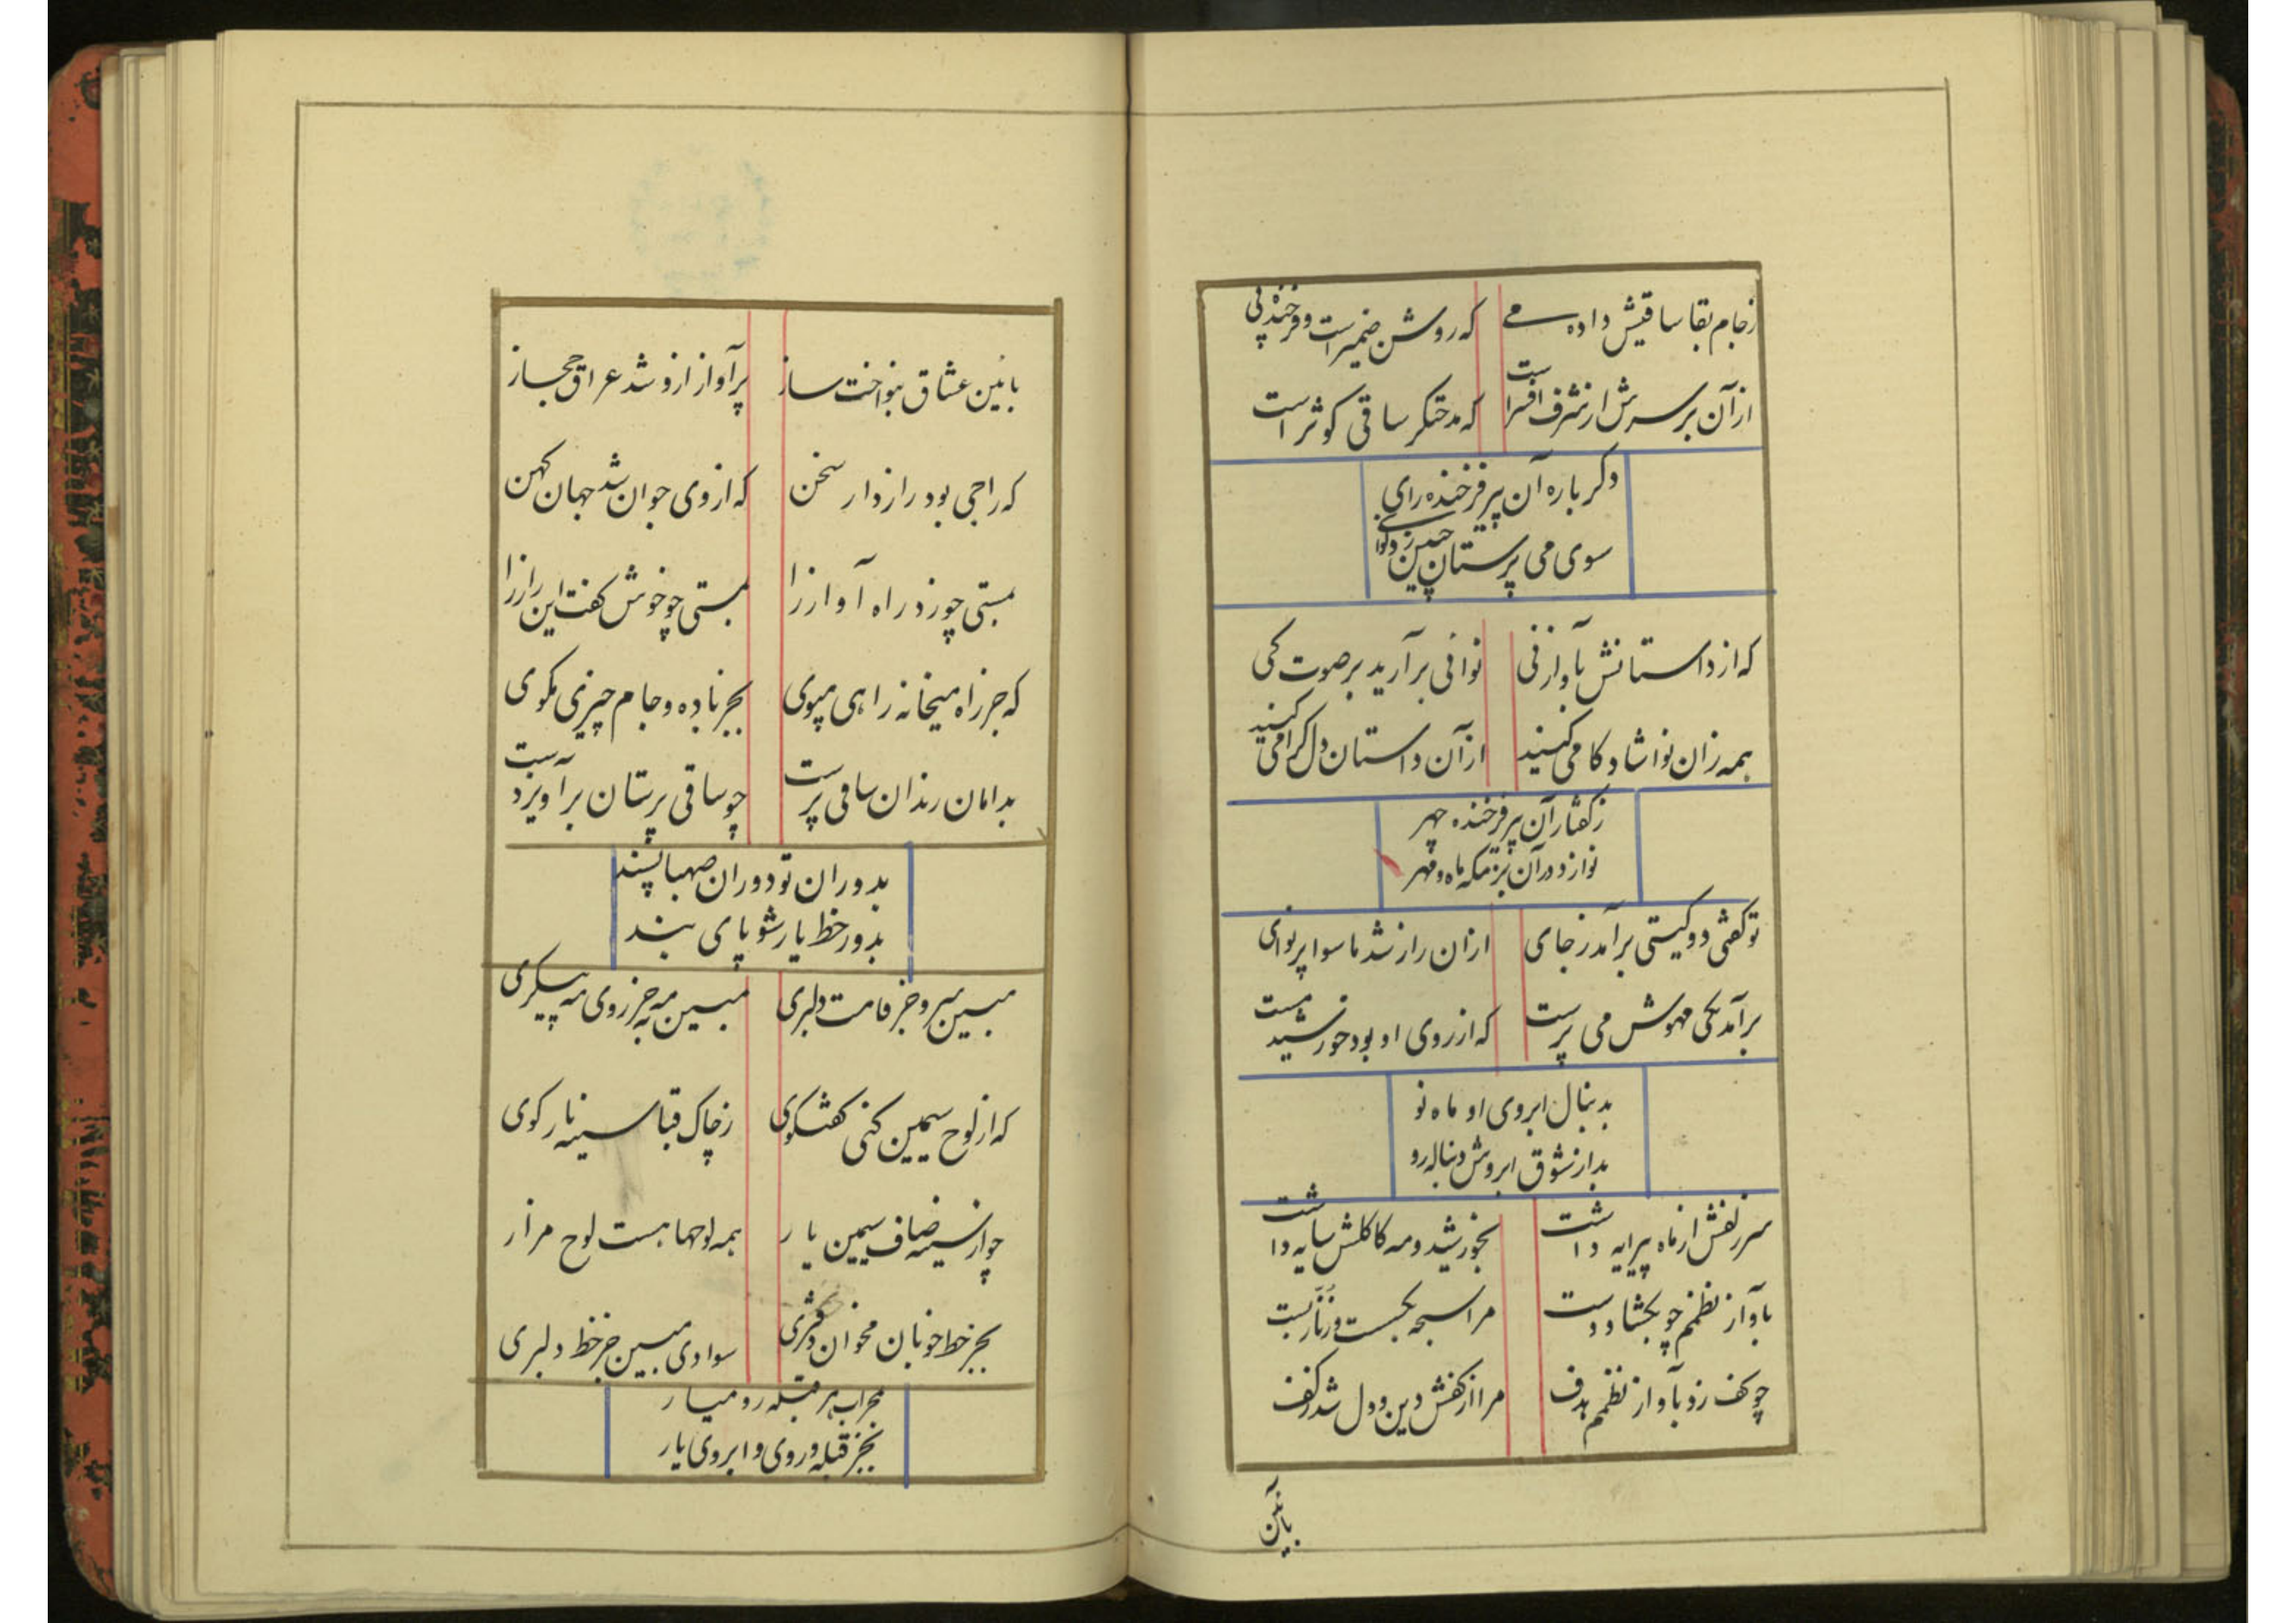 زجام بقا ساقیش داده می که روشن ضمیرست و فرخنده پی
از آن بر سرش از شرف افسر است که مدحتگر ساقی کوثر است
دکر باره آن پیر فرخنده رای
سوی می پرستان چنین زد نوای
که از داستانش بآواز نی نوائی برآرید بر صوت کی
همه زان نوا شادکامی کنید از آن داستان دل کرامی کنید
زکفتار آن پیر فرخنده چهر
نوا زد در آن بزمکه ماه و مهر
تو کفتی دو کیتی برآمد زجای ازان راز شد ماسوا پر نوای
برآمد یکی مهوش می پرست که از روی او بود خورشید مست
بدنبال ابروی او ماه نو
بد از شوق ابروش دنباله رو
سر زلفش از ماه پیرایه داشت بخورشید و مه کاکلش سایه داشت
بآواز نظمم چو بکشاد دست مرا سبحه بکسست و زنار بست
چو کف زد بآواز نظمم بدف مرا از کفش دین و دل شد زکف
بائین
بائین عشاق بنواخت ساز پرآواز ازو شد عراق و حجاز
که راجی بود رازدار سخن که از وی جوان شد جهان کهن
بمستی چو زد راه آواز را بمستی چو خوش کفت این راز را
که جز راه میخانه راهی مپوی بجز باده و جام چیزی مکوی
بدامان رندان سامی پرست چو ساقی پرستان برآویز دست
بدوران تو دوران صهبا پسند
بدور خط یار شو پای بند
مبین سرو جز قامت دلبری مبین مه بجز روی مه پیکری
که از لوح سیمین کنی کفتکوی زچاک قبا سینه نار کوی
چو از سینه صاف سیمین یار همه لوحها هست لوح مزار
بجز خط خوبان مخوان دفتری سوادی مبین جز خط دلبری
بمحراب هر قبله رو میار
بجز قبله روی و ابروی یار